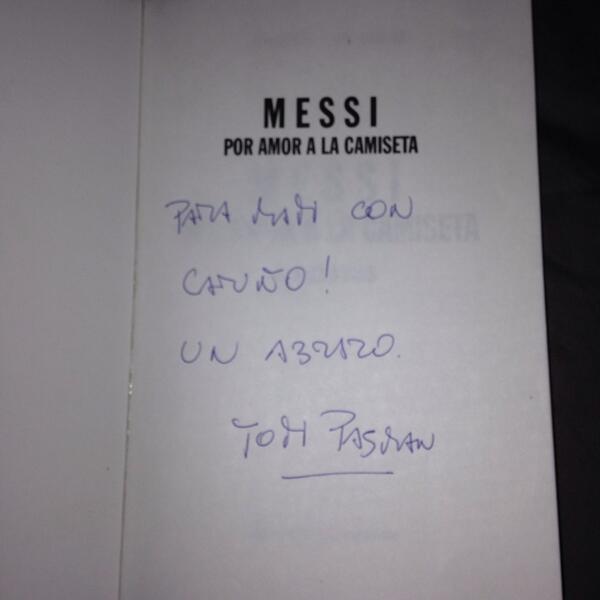 MESSI
POR AMOR A LA CAMISETA
PARA MARI CON
CARIÑO!
UN ABRAZO.
TOTI PASMAN